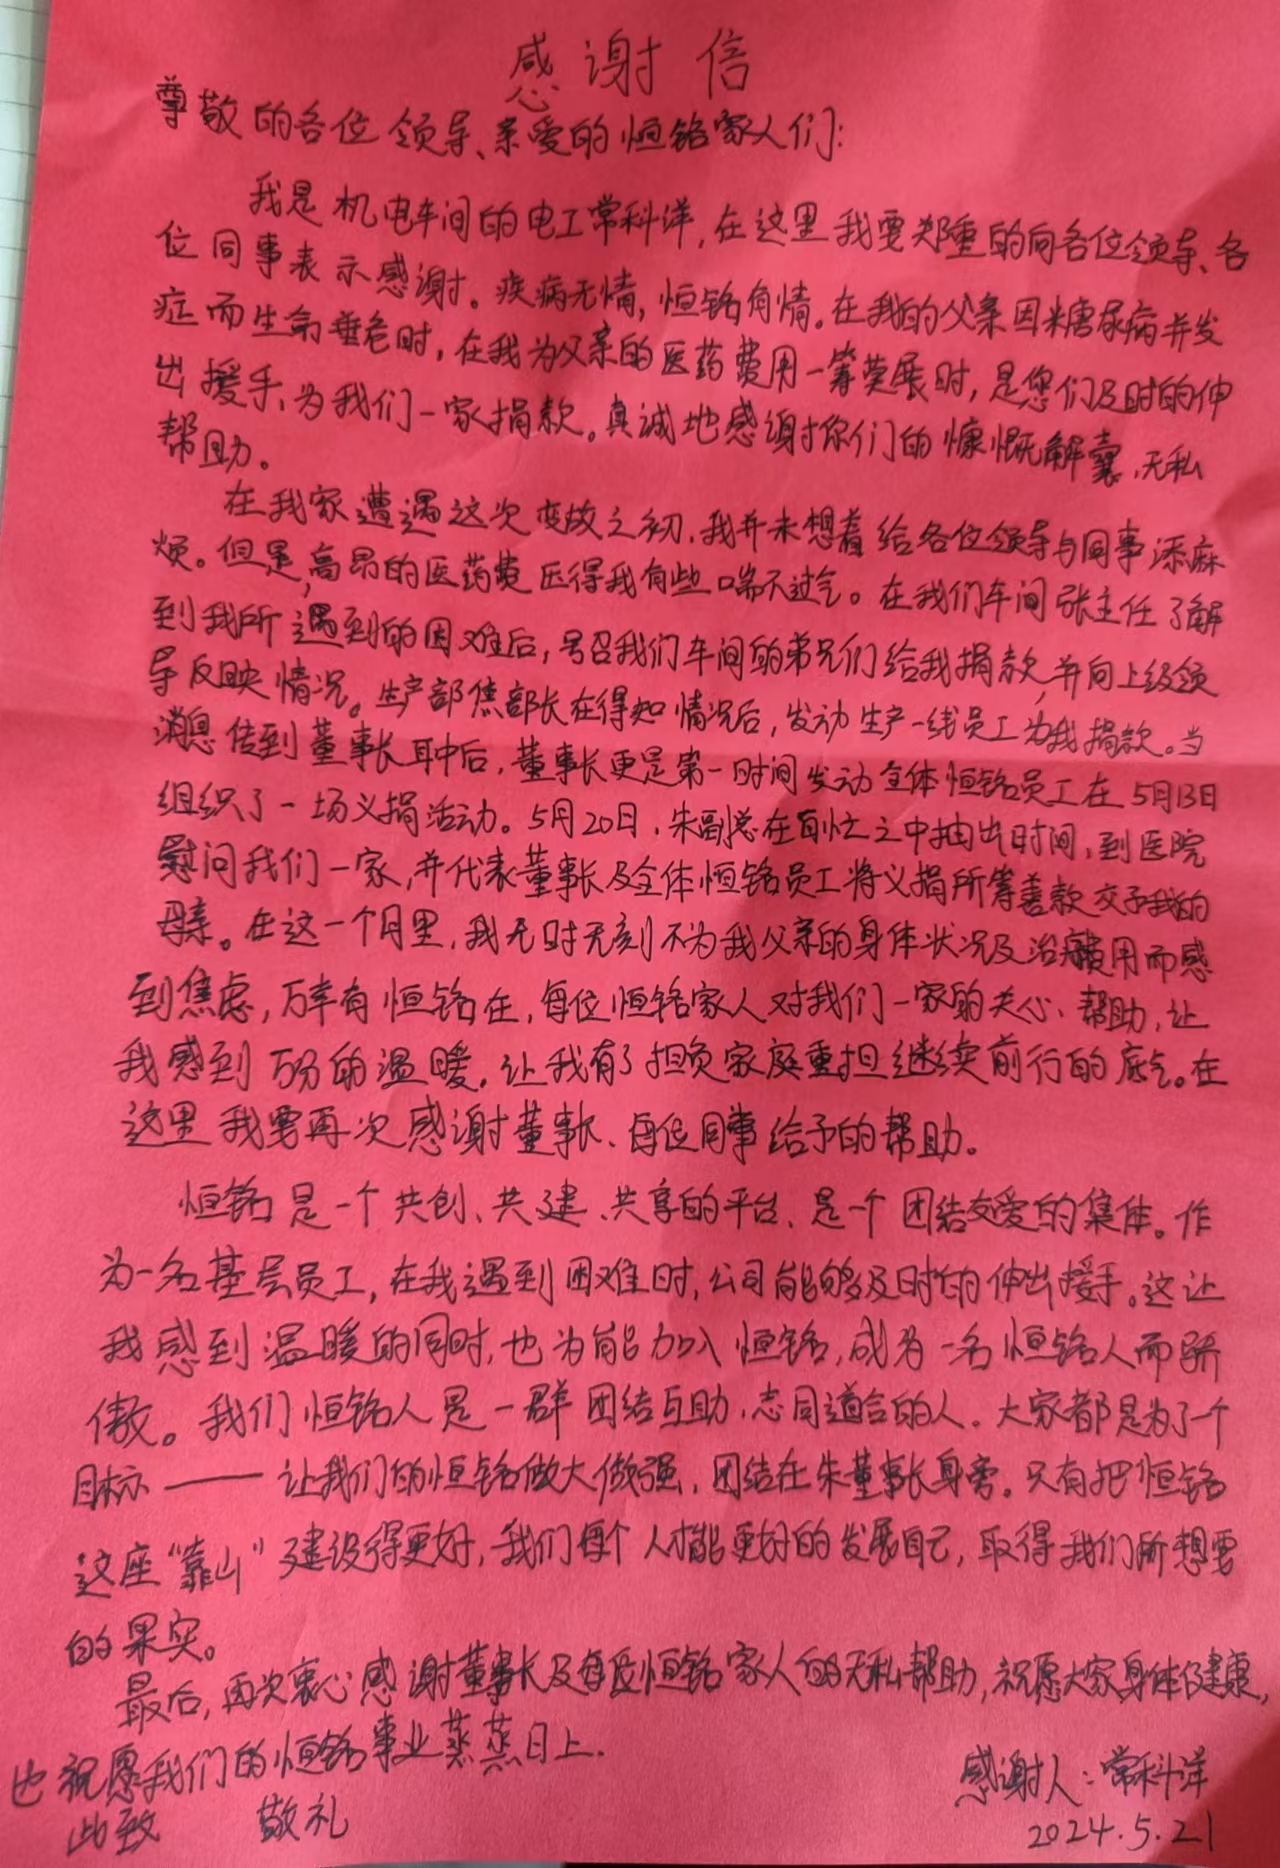 感谢信
尊敬的各位领导、亲爱的恒铭家人们:
我是机电车间的电工常科洋,在这里我要郑重的向各位领导、各
位同事表示感谢。疾病无情,恒铭有情。在我的父亲因糖尿病并发
症而生命垂危时,在我为父亲的医药费用一筹莫展时,是您们及时的伸
出援手、为我们一家捐款。真诚地感谢你们的慷慨解囊、无私
帮助。
在我家遭遇这次变故之初,我并未想着给各位领导与同事添麻
烦。但是,高昂的医药费压得我有些喘不过气。在我们车间张主任了解
到我所遇到的困难后,号召我们车间的弟兄们给我捐款,并向上级领
导反映情况。生产部焦部长在得知情况后,发动生产一线员工为我捐款。当
消息传到董事长耳中后,董事长更是第一时间发动全体恒铭员工在5月13日
组织了一场义捐活动。5月20日,朱副总在百忙之中抽出时间,到医院
慰问我们一家,并代表董事长及全体恒铭员工将义捐所筹善款交予我的
母亲。在这一个月里,我无时无刻不为我父亲的身体状况及治疗费用而感
到焦虑,万幸有恒铭在,每位恒铭家人对我们一家的关心、帮助,让
我感到万分的温暖,让我有了担负家庭重担继续前行的底气。在
这里我要再次感谢董事长、每位同事给予的帮助。
恒铭是一个共创、共建、共享的平台、是一个团结友爱的集体。作
为一名基层员工,在我遇到困难时,公司能够及时的伸出援手。这让
我感到温暖的同时,也为能加入恒铭,成为一名恒铭人而骄
傲。我们恒铭人是一群团结互助,志同道合的人。大家都是为了一个
目标——让我们的恒铭做大做强,团结在朱董事长身旁。只有把恒铭
这座“靠山”建设得更好,我们每个人才能更好的发展自己,取得我们所想要
的果实。
最后,再次衷心感谢董事长及每位恒铭家人的无私帮助,祝愿大家身体健康,
也祝愿我们的恒铭事业蒸蒸日上.
此致 敬礼
感谢人:常科洋
2024.5.21